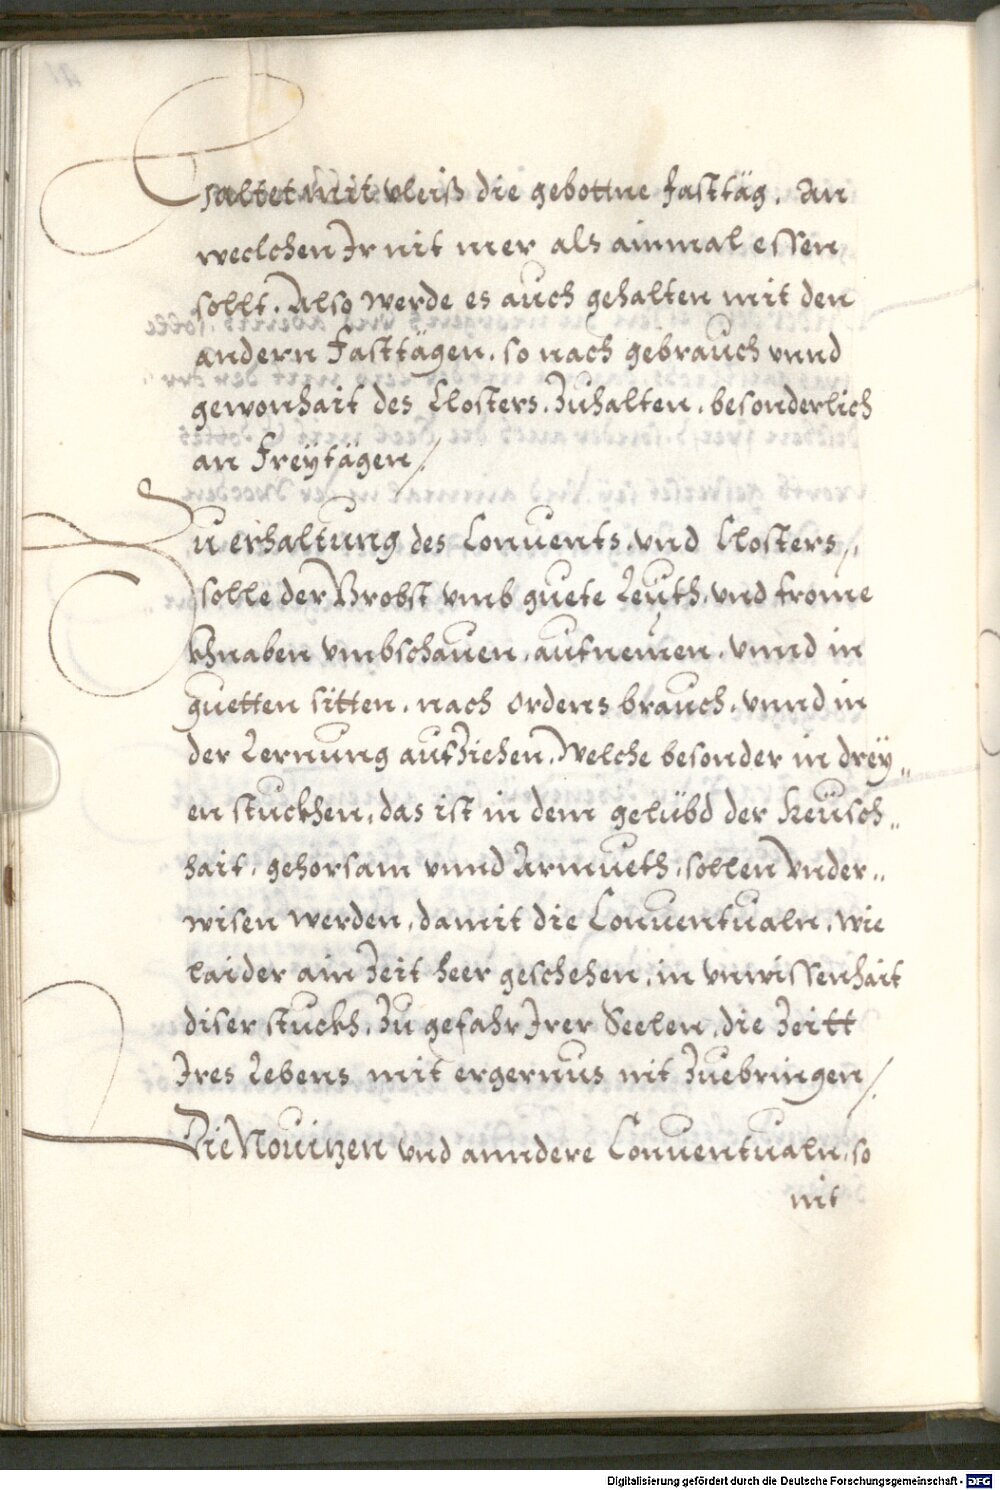 Haltet mit vleiß die gebottne fasttäg. An
weclchen Ir nit mer als ainmal essen
sollt. Also werde es auch gehalten mit den
andern fasttägen. so nach gebrauch vnnd
gewonhait des Closters. Zuhalten. besonderlich
an Freÿtägen/.
Zu erhaltung des Conuents. vnd Closters/.
solle der Brobst vmb guete Leuth. vnd frome
Khnaben vmbschauen. aufnemen. vnnd in
guetten sitten. nach ordens brauch. vnnd in
der Lernung aufZiehen. Welche besonder in dreÿ„
en stuckhen. das ist in dem gelübd der Keüsch„
hait. gehorsam vnnd Armueth. sollen vnder„
wisen werden. damit die Conuentualn. wie
laider ain Zeit heer geschehen. in vnwissenhait
diser stuckh. Zu gefahr Irer Seelen. die Zeitt
Ires Lebens mit ergernus nit Zuebringen/.
Die Nouitzen vnd anndere Conuentualn. so
nit
Digitalisierung gefördert durch die Deutsche Forschungsgemeinschaft - DFG